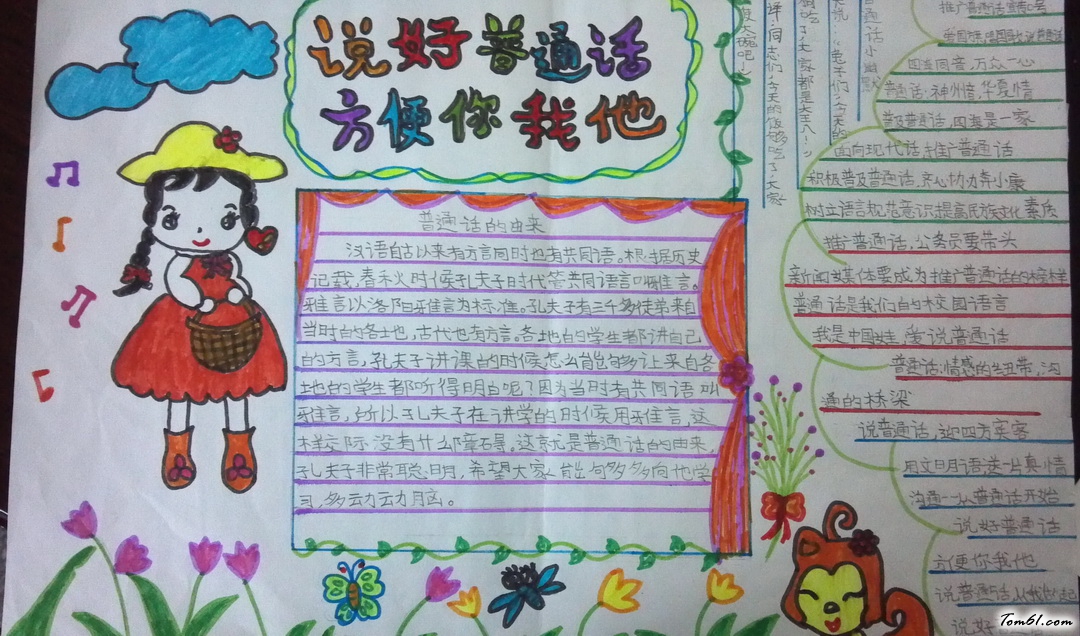 说好普通话
方便你我他
普通话的由来
汉语自古以来有方言同时也有共同语。根据历史
记载，春秋时候孔夫子时代管共同语言叫雅言。
雅言以洛阳雅言为标准。孔夫子有三千多徒弟来自
当时的各地，古代也有方言。各地的学生都讲自己
的方言，孔夫子讲课的时候怎么能够让来自各
地的学生都听得明白呢？因为当时有共同语叫
雅言，所以孔夫子在讲学的时候用雅言，这
样交际没有什么障碍。这就是普通话的由来，
孔夫子非常聪明，希望大家能够多多向他学
习，多动动脑。
四海同音，万众一心
普通话，神州音，华夏情
普及普通话，四海是一家
面向现代话，推广普通话
积极普及普通话，齐心协力奔小康
树立语言规范意识，提高民族文化素质
推广普通话，公务员要带头
新闻媒体要成为推广普通话的榜样
普通话是我们的校园语言
我是中国娃，爱说普通话
普通话：情感的纽带，沟
通的桥梁
说普通话，迎四方宾客
用文明语，送一片真情
沟通——从普通话开始
说好普通话
方便你我他
说普通话，从我做起
说好
Tom61.com